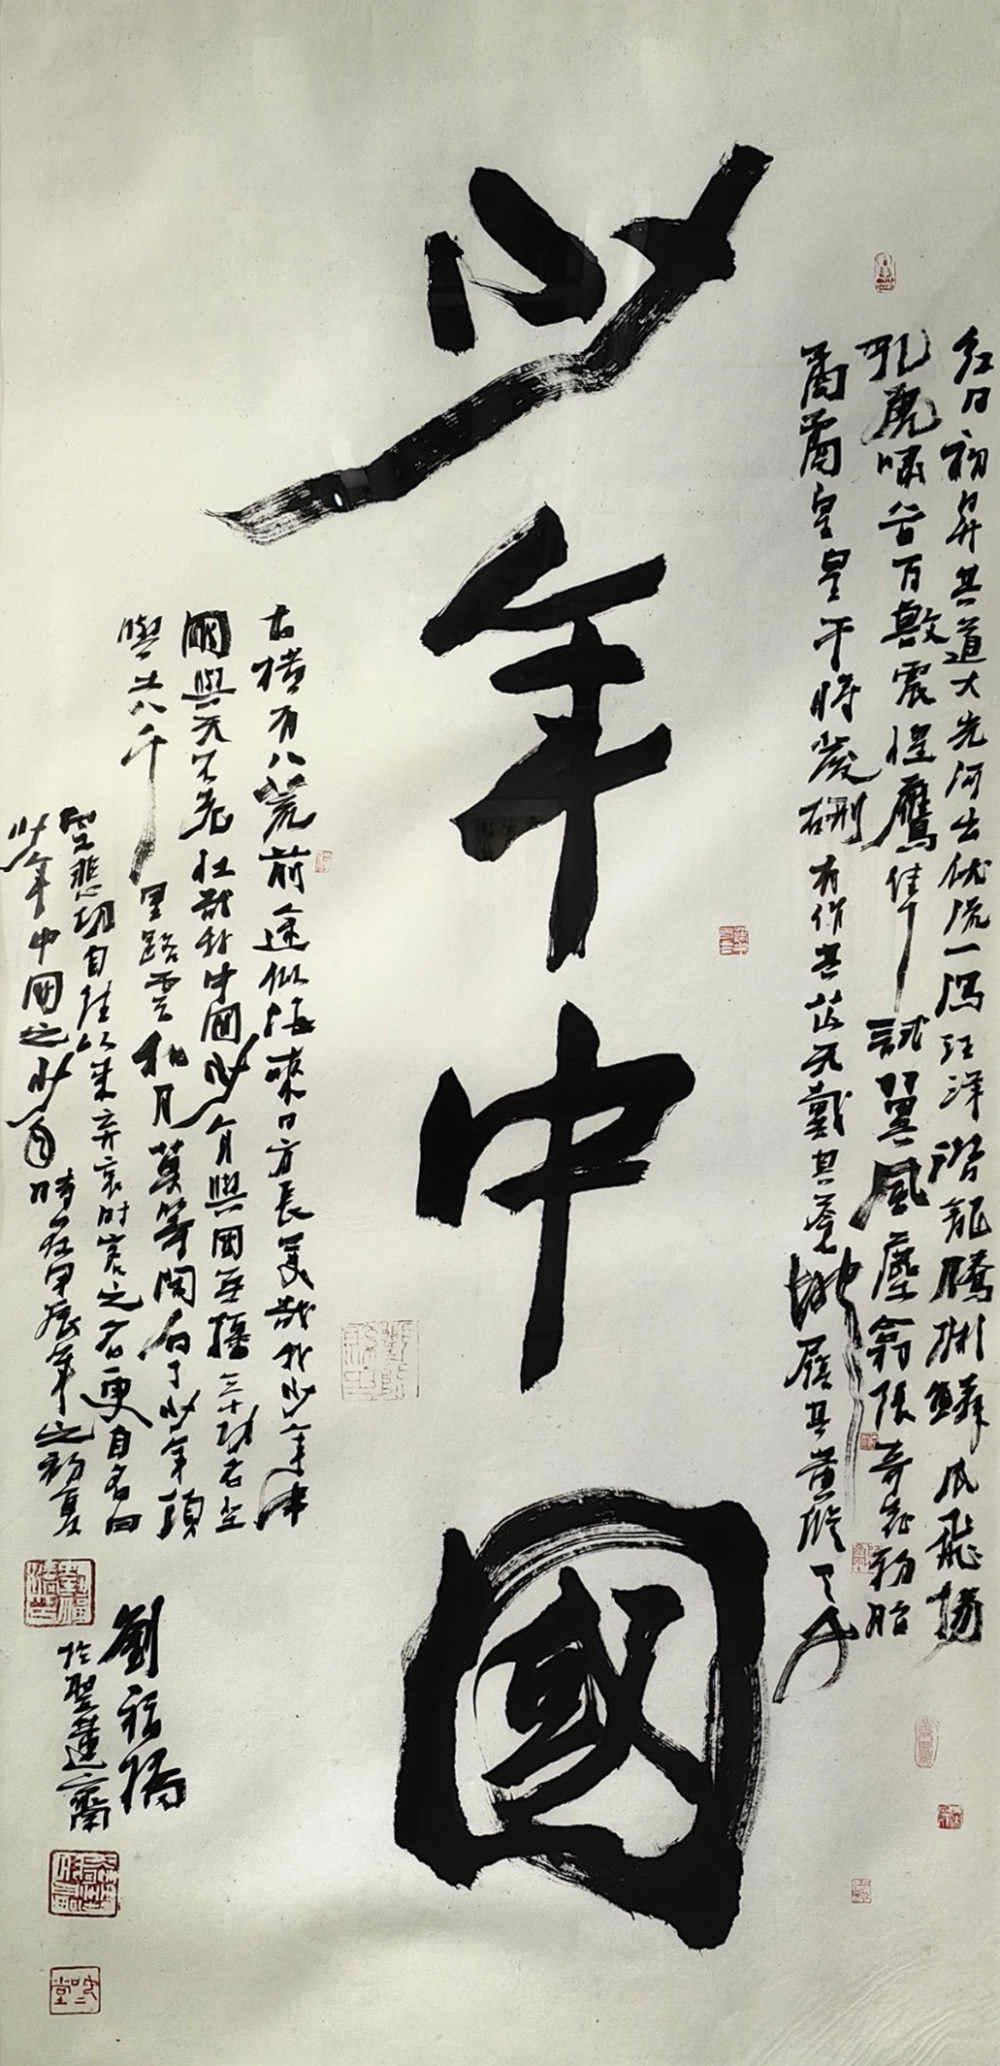 红日初昇其道大光河出伏流一泻汪洋潜龍騰渊鳞爪飛揚
乳虎啸谷百獸震惶鷹隼試翼風塵翕張奇花初胎
矞矞皇皇干將發硎有作其芒天戴其蒼地履其黄縱有千
少年中國
古横有八荒前途似海來日方長美哉我少年中
國與天不老壯哉我中國少年與國無疆三十功名塵
與土八千里路雲和月莫等閑白了少年頭
空悲切自往以来弃哀时客之名更自名曰
少年中國之少年時在甲辰年之初夏
劉福橋
於聖蓮齋